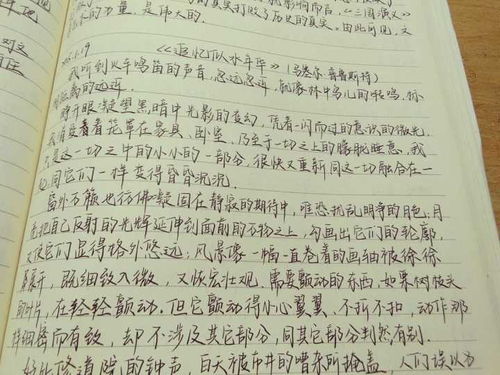 的真实打败了历史的真实。由此可见，文
水的力量，是伟大的。
1.19 《追忆似水年华》（马塞尔·普鲁斯特）
我听到火车鸣笛的声音，忽远忽近，就像林中鸟儿的转鸣，标
距离的远近。
睁开眼凝望黑暗中光影的变幻，凭着一闪而过的意识的微光，
着笼罩在家具、卧室、乃至于一切之上的朦胧睡意，我
是这一切之中的小小的一部分，很快又重新同这一切融合在一
起，同它们一样变得昏昏沉沉。
窗外万籁也仿佛凝固在静寂的期待中，唯恐扰乱明净的月色；月
把自己反射的光辉延伸到面前的万物之上，勾画出它们的轮廓，
又使它们显得格外悠远；风景像一幅一直卷着的画轴被徐徐
展开，既细致入微，又恢宏壮观。需要颤动的东西，如果树枝头
的叶片，在轻轻颤动。但它颤动得小心翼翼、不折不扣，动作那
样细密而有致，却不涉及其它部分，同其它部分判然有别。
好比修道院的钟声，白天被市井的嘈杂所掩盖，人们误以为